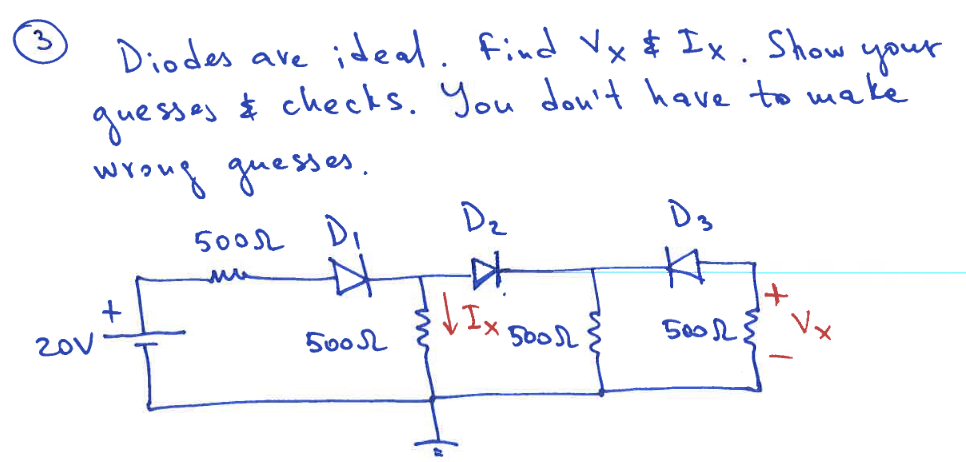 3
Diodes are ideal. Find Vx & Ix. Show your
guesses & checks. You don't have to make
wrong guesses.
500Ω D1 D2 D3
+
20V
500Ω ↓ Ix 500Ω 500Ω + Vx −